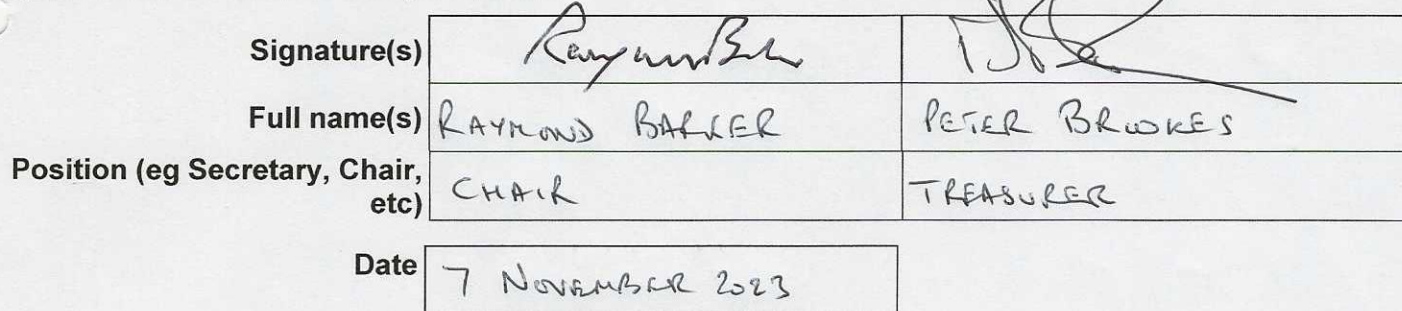 Signature(s)
Full name(s) RAYMOND BARKER PETER BROOKES
Position (eg Secretary, Chair, etc) CHAIR TREASURER
Date 7 NOVEMBER 2023